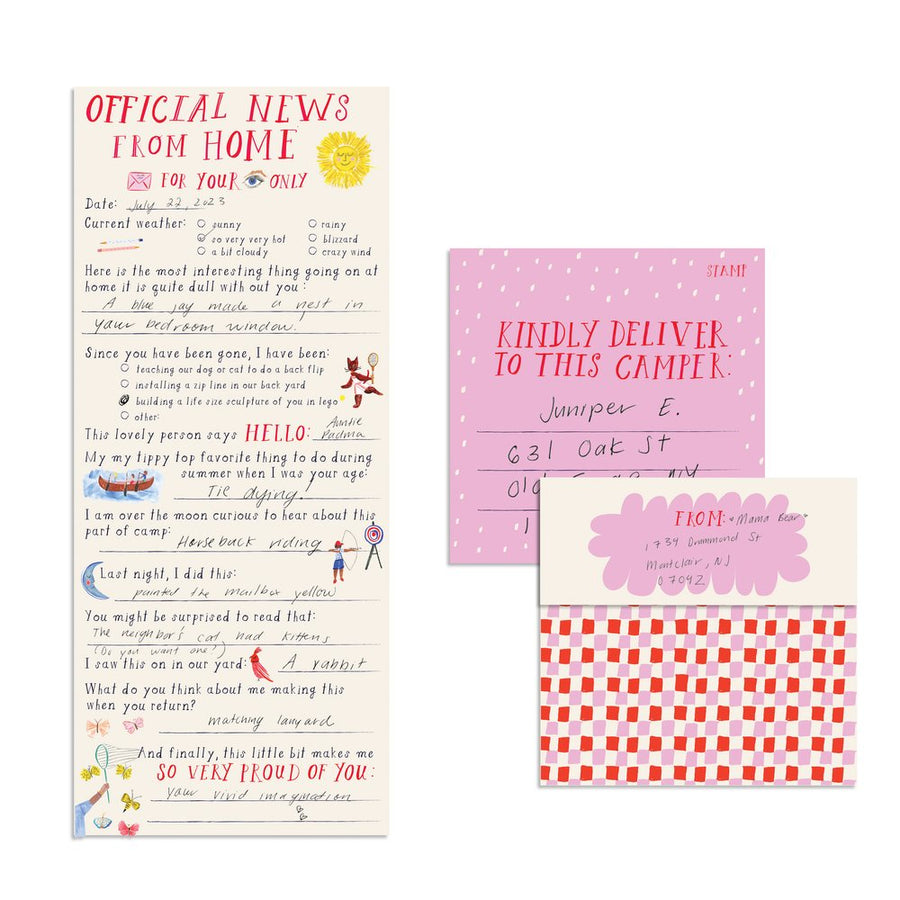 OFFICIAL NEWS
FROM HOME
FOR YOUR ONLY
Date: July 22, 2023
Current weather: sunny rainy
so very very hot blizzard
a bit cloudy crazy wind
Here is the most interesting thing going on at
home it is quite dull with out you:
A blue jay made a nest in
your bedroom window!
Since you have been gone, I have been:
teaching our dog or cat to do a back flip
installing a zip line in our back yard
building a life size sculpture of you in lego
other:
This lovely person says HELLO: Auntie
Padma
My my tippy top favorite thing to do during
summer when I was your age:
Tie dying!
I am over the moon curious to hear about this
part of camp:
Horseback riding
Last night, I did this:
painted the mailbox yellow
You might be surprised to read that:
The neighbor's cat had kittens
(Do you want one?)
I saw this on in our yard: A rabbit
What do you think about me making this
when you return?
matching lanyard
And finally, this little bit makes me
SO VERY PROUD OF YOU:
your vivid imagination
STAMP
KINDLY DELIVER
TO THIS CAMPER:
Juniper E.
631 Oak St
NY
FROM: "Mama Bear"
1739 Drummond St
Montclair, NJ
07042